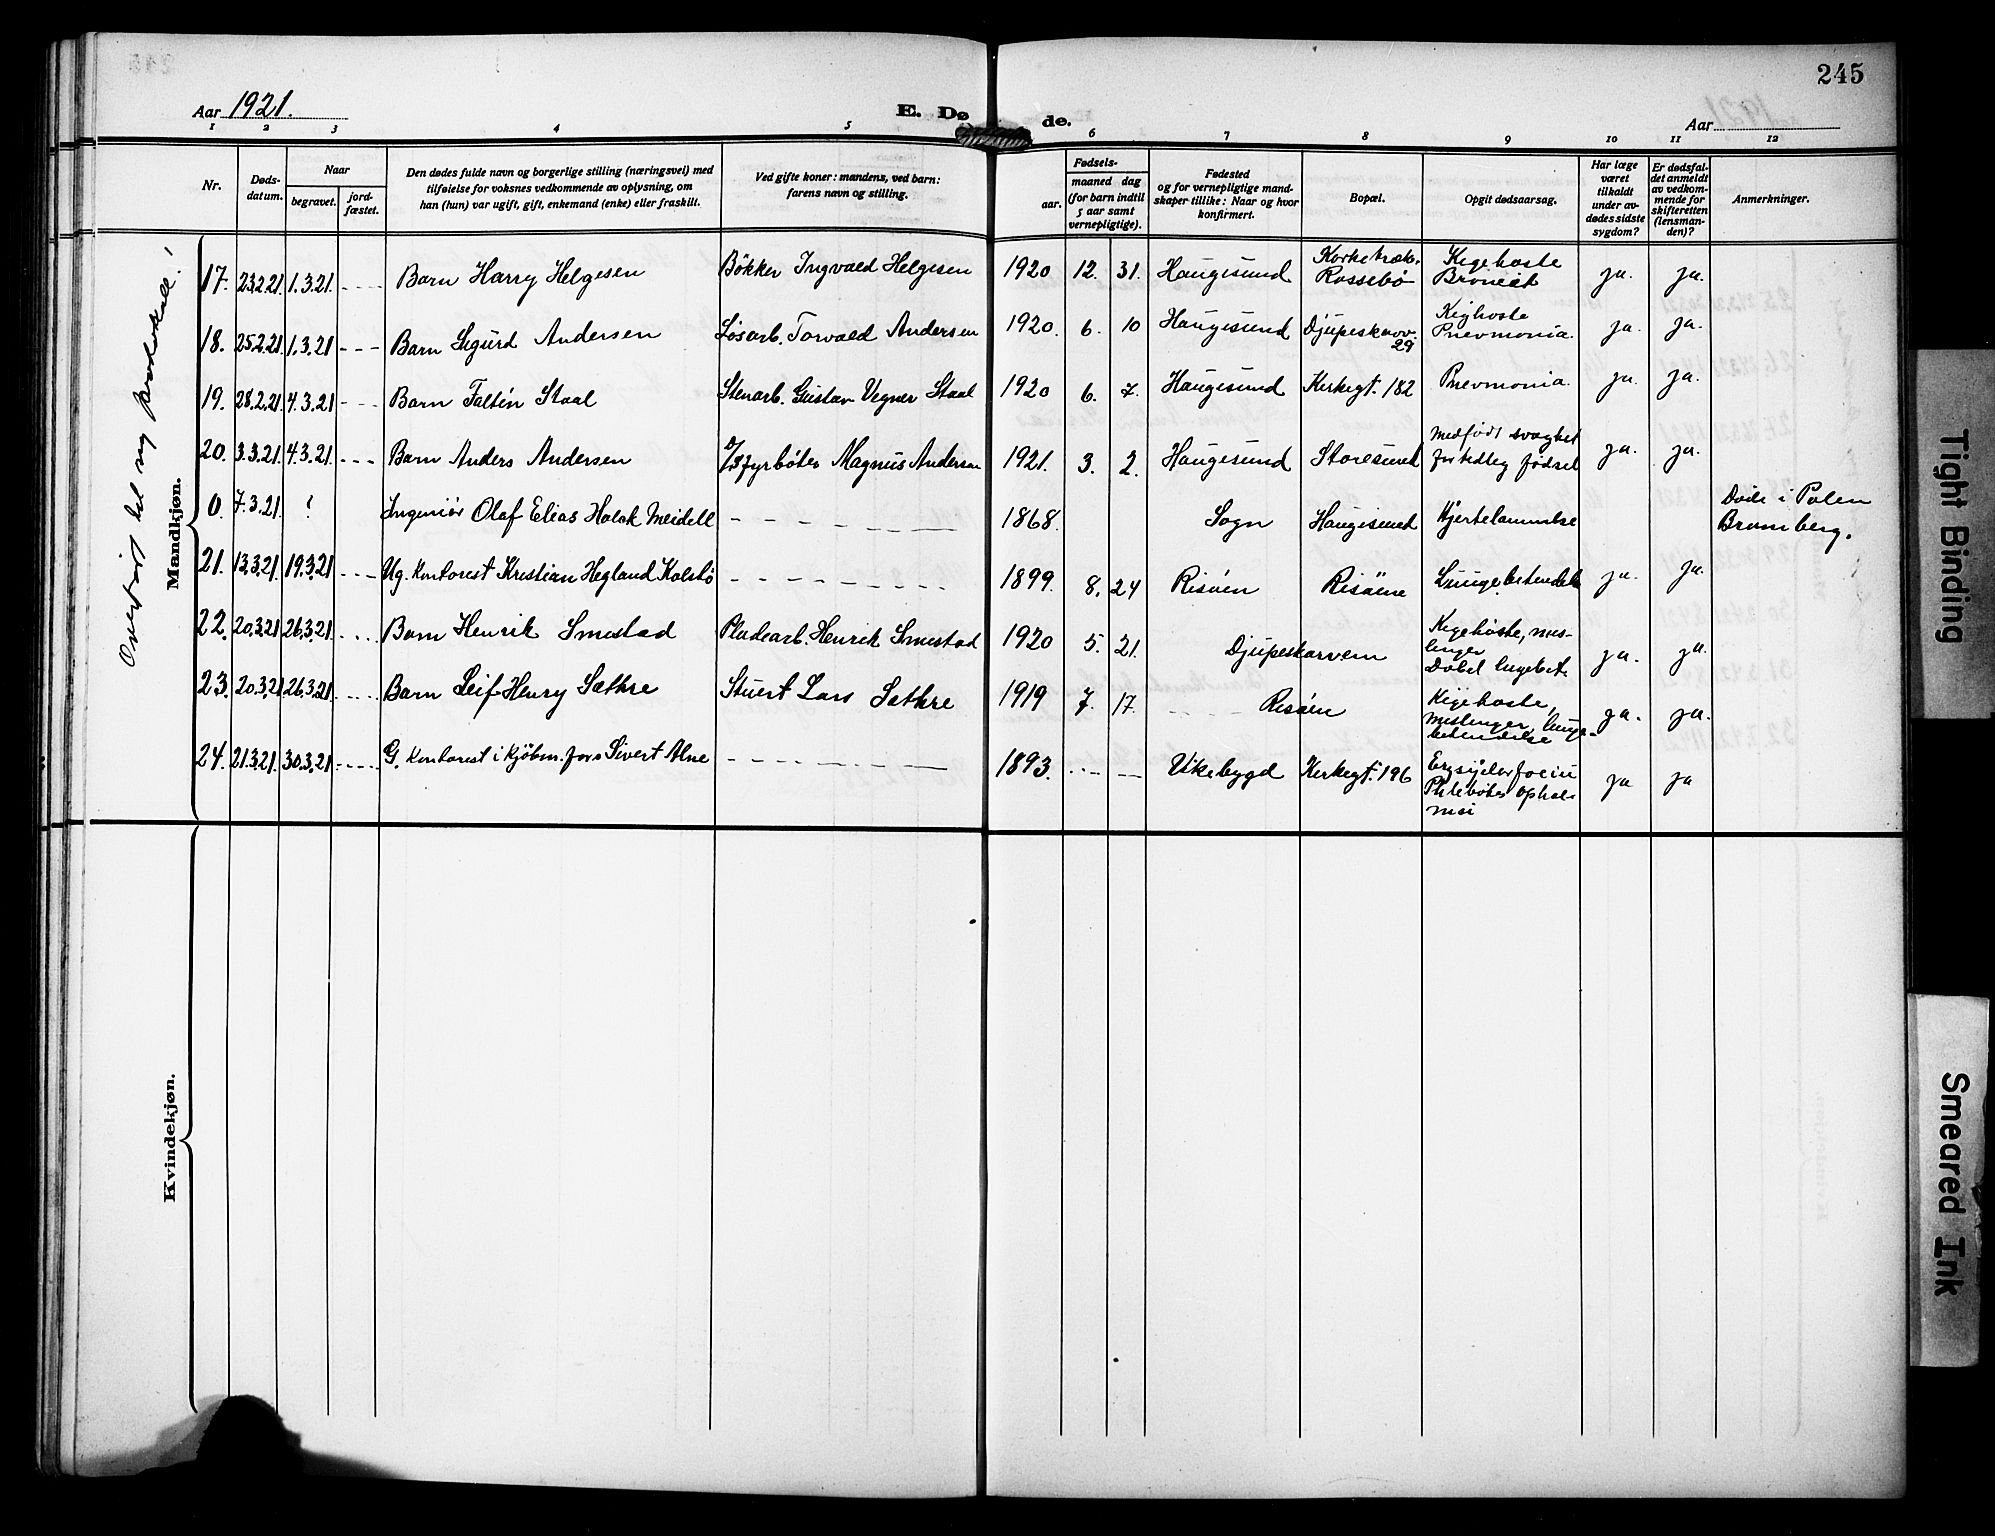 245
Aar 1921.
E. Dø de.
Aar
1 2 3 4 5 6 7 8 9 10 11 12
Nr.
Døds-
datum.
Naar
begravet.
jord-
fæstet.
Den dødes fulde navn og borgerlige stilling (næringsvei) med
tilføielse for voksnes vedkommende av oplysning, om
han (hun) var ugift, gift, enkemand (enke) eller fraskilt.
Ved gifte koner: mandens, ved barn:
farens navn og stilling.
Fødsels-
aar.
maaned dag
(for barn indtil
5 aar samt
vernepligtige).
Fødested
og for vernepligtige mand-
skaper tillike: Naar og hvor
konfirmert.
Bopæl.
Opgit dødsaarsag.
Har læge
været
tilkaldt
under av-
dødes sidste
sygdom?
Er dødsfal-
det anmeldt
av vedkom-
mende for
skifteretten
(lensman-
den)?
Anmerkninger.
Overført til ny Protokoll!
Mandkjøn.
17. 23.2.21. 1.3.21. Barn Harry Helgesen Bøkker Ingvald Helgesen 1920 12. 31. Haugesund Rossebø Kigehoste ja. ja.
18. 25.2.21. 1.3.21 Barn Sigurd Andersen Løsarb. Torvald Andersen 1920. 6. 10 Haugesund Djupeskarv. 29 Kighoste Pnevmonia ja. ja.
19. 28.2.21. 4.3.21 Barn Faltin Staal Stenarb. Gustav Vegner Staal 1920 6. 7. Haugesund Kirkegt. 182 Pnevmonia ja. ja.
20. 3.3.21. 4.3.21. Barn Anders Andersen Fyrbøter Magnus Andersen 1921. 3. 2. Haugesund Storesund Medfødt svaghet for tidlig fødsel ja. ja.
0. 7.3.21. ! Ingeniør Olaf Elias Holck Meidell 1868. Sogn Haugesund Hjertelammelse Døde i Polen Bromberg.
21. 13.3.21. 19.3.21 Ug. Kontorist Kristian Hegland Kolstø 1899. 8. 24 Risøen Risøene Lungebetendelse ja. ja.
22. 20.3.21 26.3.21. Barn Henrik Smestad Pladearb. Henrik Smestad 1920 5. 21. Djupeskarven Kigehoste, mes-
linger
Dobel lugebet. ja. ja.
23. 20.3.21 26.3.21. Barn Leif Henry Sæthre Stuert Lars Sæthre 1919 7. 17. Risøen Kigehoste,
Meslinger, lunge-
betendelse ja. ja.
24. 21.3.21. 30.3.21. G. Kontorist i kjøbm. forr. Sivert Alne 1893. Vikebygd Kirkegt. 196 ja ja
Kvindekjøn.
Tight Binding
Smeared Ink